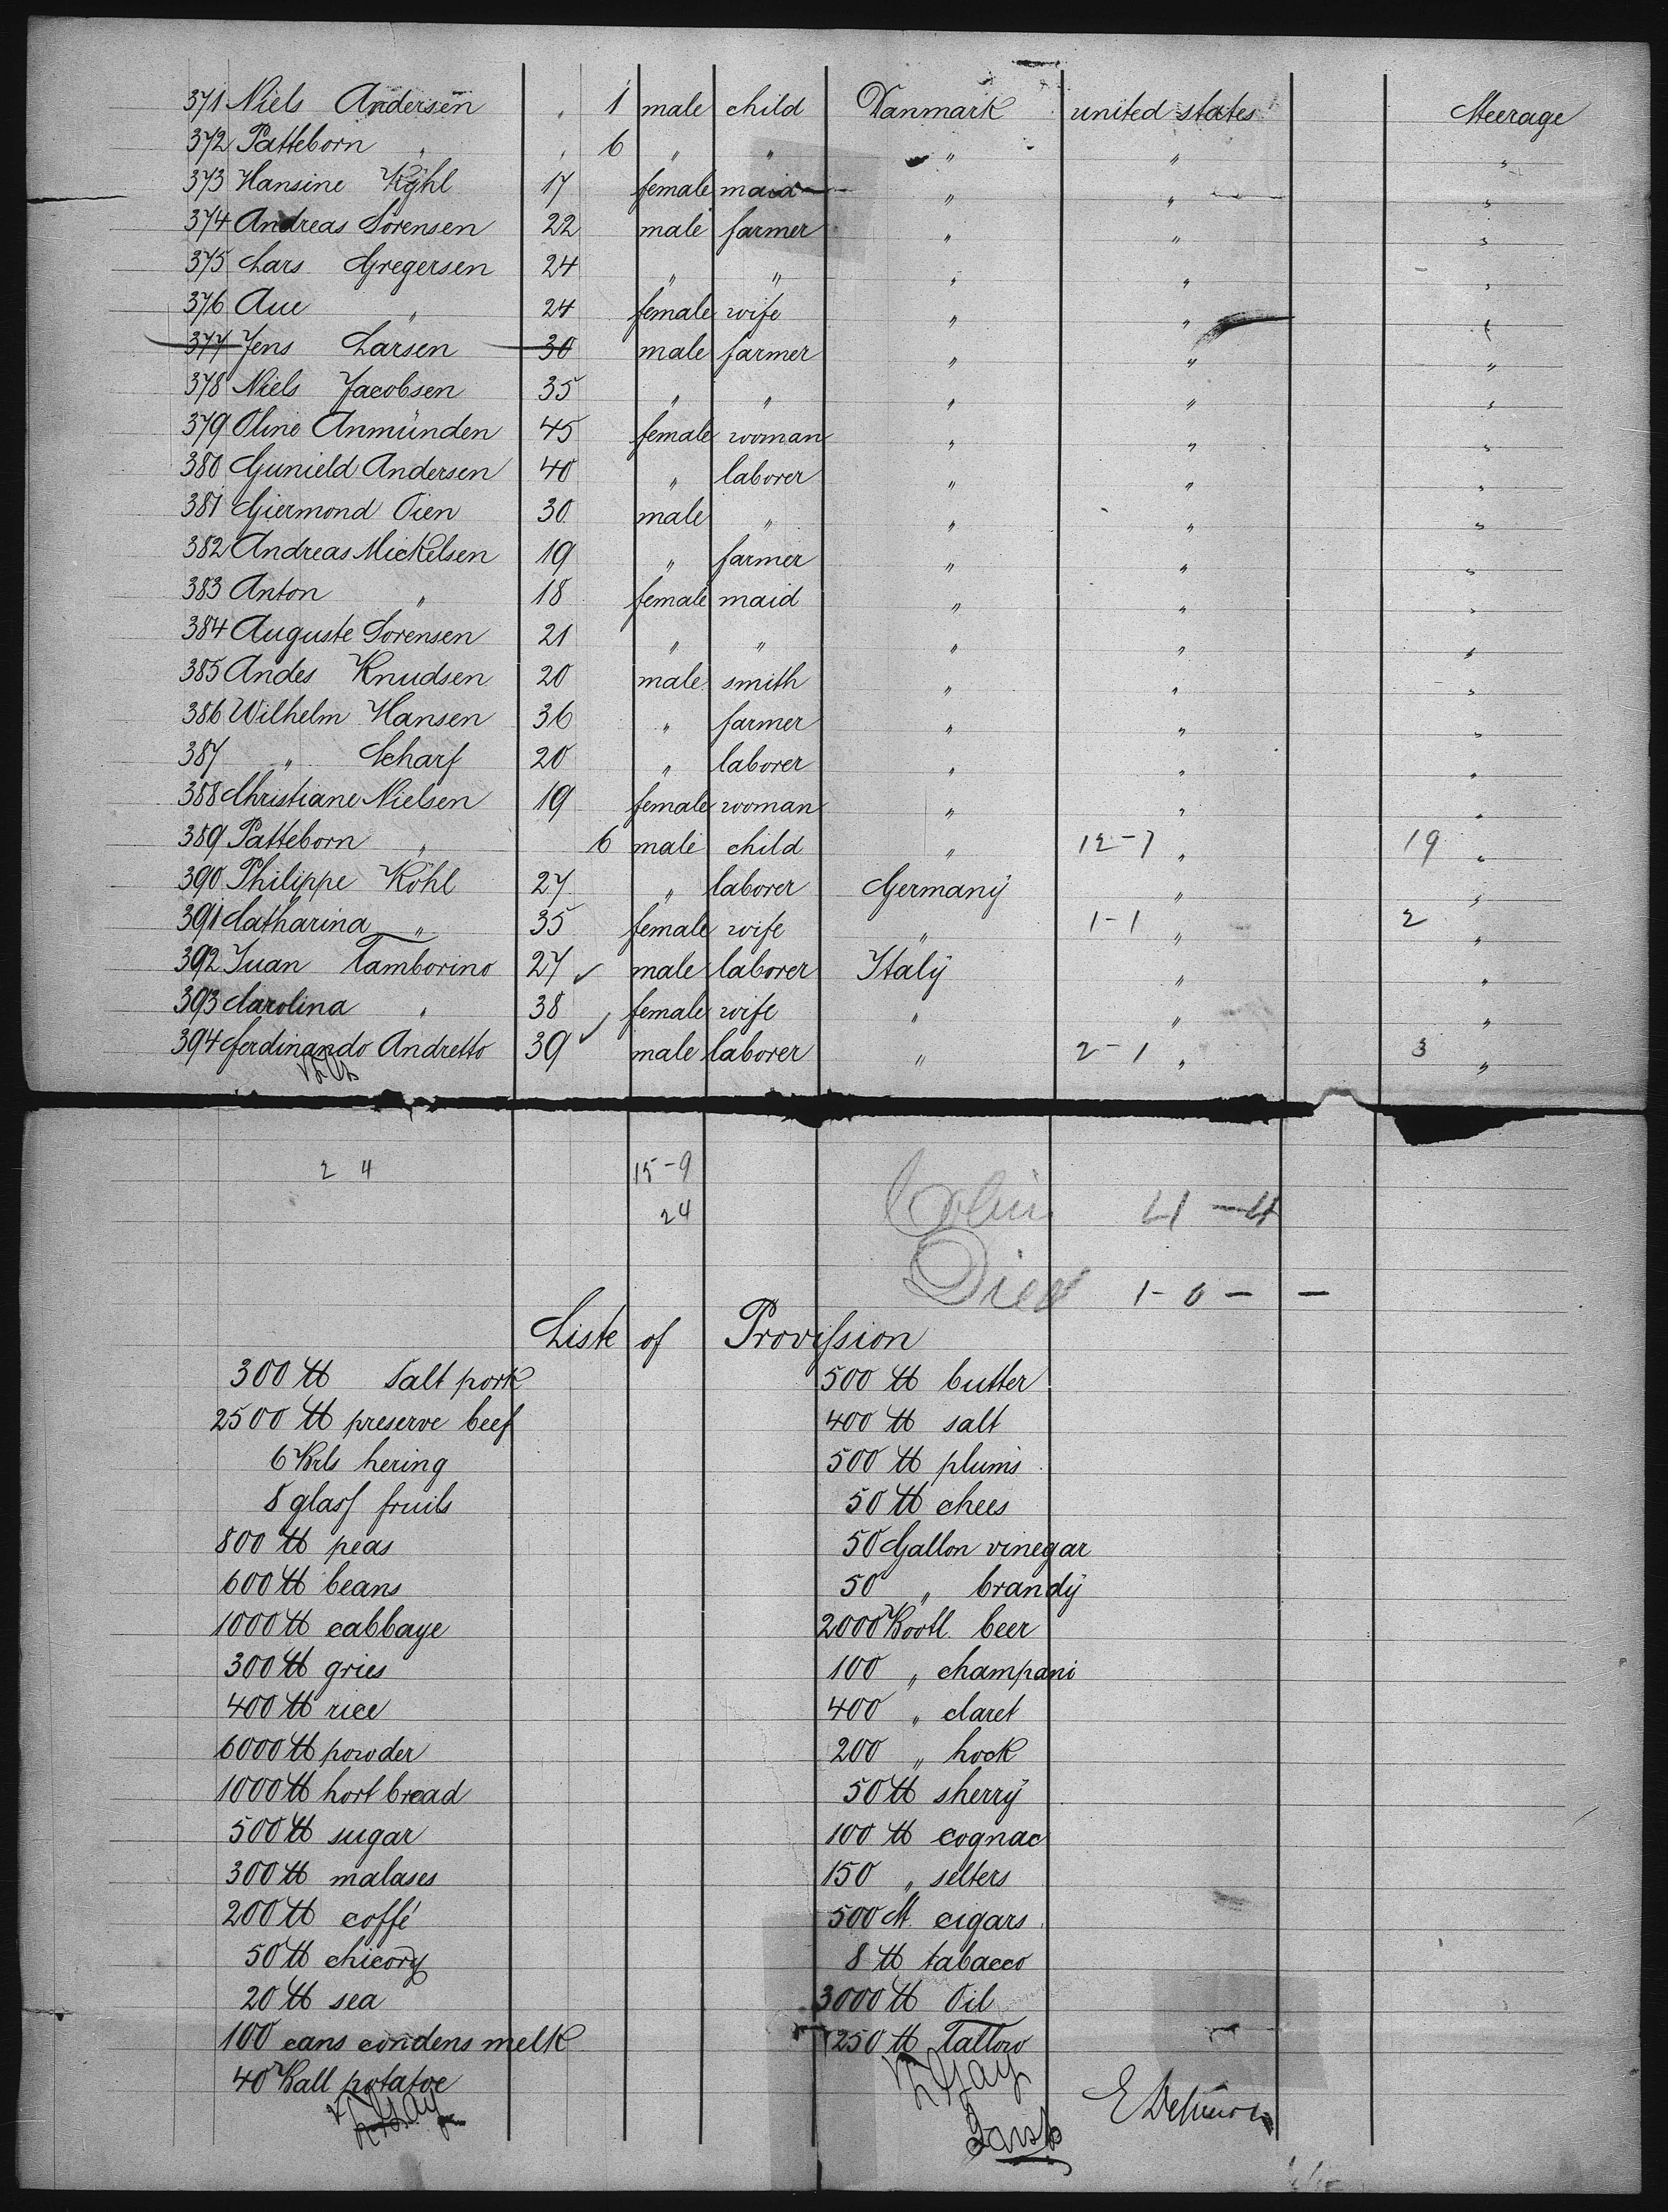 371 Niels Andersen " 1 male child Danmark united states Steerage
372 Patteborn " " 6 " " " " "
373 Hansine Kÿhl 17 female maid " " "
374 Andreas Sorensen 22 male farmer " " "
375 Lars Gregersen 24 " " " " "
376 Ane " 24 female wife " " "
377 Jens Larsen 30 male farmer " " "
378 Niels Jacobsen 35 " " " " "
379 Oline Anmünden 45 female woman " " "
380 Gunield Andersen 40 " laborer " " "
381 Giermond Oien 30 male " " " "
382 Andreas Mickelsen 19 " farmer " " "
383 Anton " 18 female maid " " "
384 Auguste Sorensen 21 " " " " "
385 Andes Knudsen 20 male smith " " "
386 Wilhelm Hansen 36 " farmer " " "
387 " Scharf 20 " laborer " " "
388 Christiane Nielsen 19 female woman " " "
389 Patteborn " 6 male child " 12-7 " 19 "
390 Philippe Köhl 27 " laborer Germanÿ " "
391 Catharina " 35 female wife " 1-1 " 2 "
392 Juan Tamborino 27 male laborer Italÿ " "
393 Carolina " 38 female wife " " "
394 Ferdinando Andretto 39 male laborer " 2-1 " 3 "
2 4 15-9
24 4-4
Died 1-0 - -
Liste of Provission
300 ℔ Salt pork 500 ℔ butter
2500 ℔ preserve beef 400 ℔ salt
6 Brls hering 500 ℔ plums
8 glass fruits 50 ℔ chees
800 ℔ peas 50 Gallon vinegar
600 ℔ beans 50 " brandÿ
1000 ℔ cabbage 2000 Bootl. beer
300 ℔ gries 100 " champani
400 ℔ rice 400 " claret
6000 ℔ powder 200 " hock
1000 ℔ hort bread 50 ℔ sherrÿ
500 ℔ sugar 100 ℔ cognac
300 ℔ malases 150 " selters
200 ℔ coffé 500 M. cigars
50 ℔ chicory 8 ℔ tabacco
20 ℔ sea 3000 ℔ Oil
100 cans condens melk 250 ℔ Tallow
40 Ball potatoe